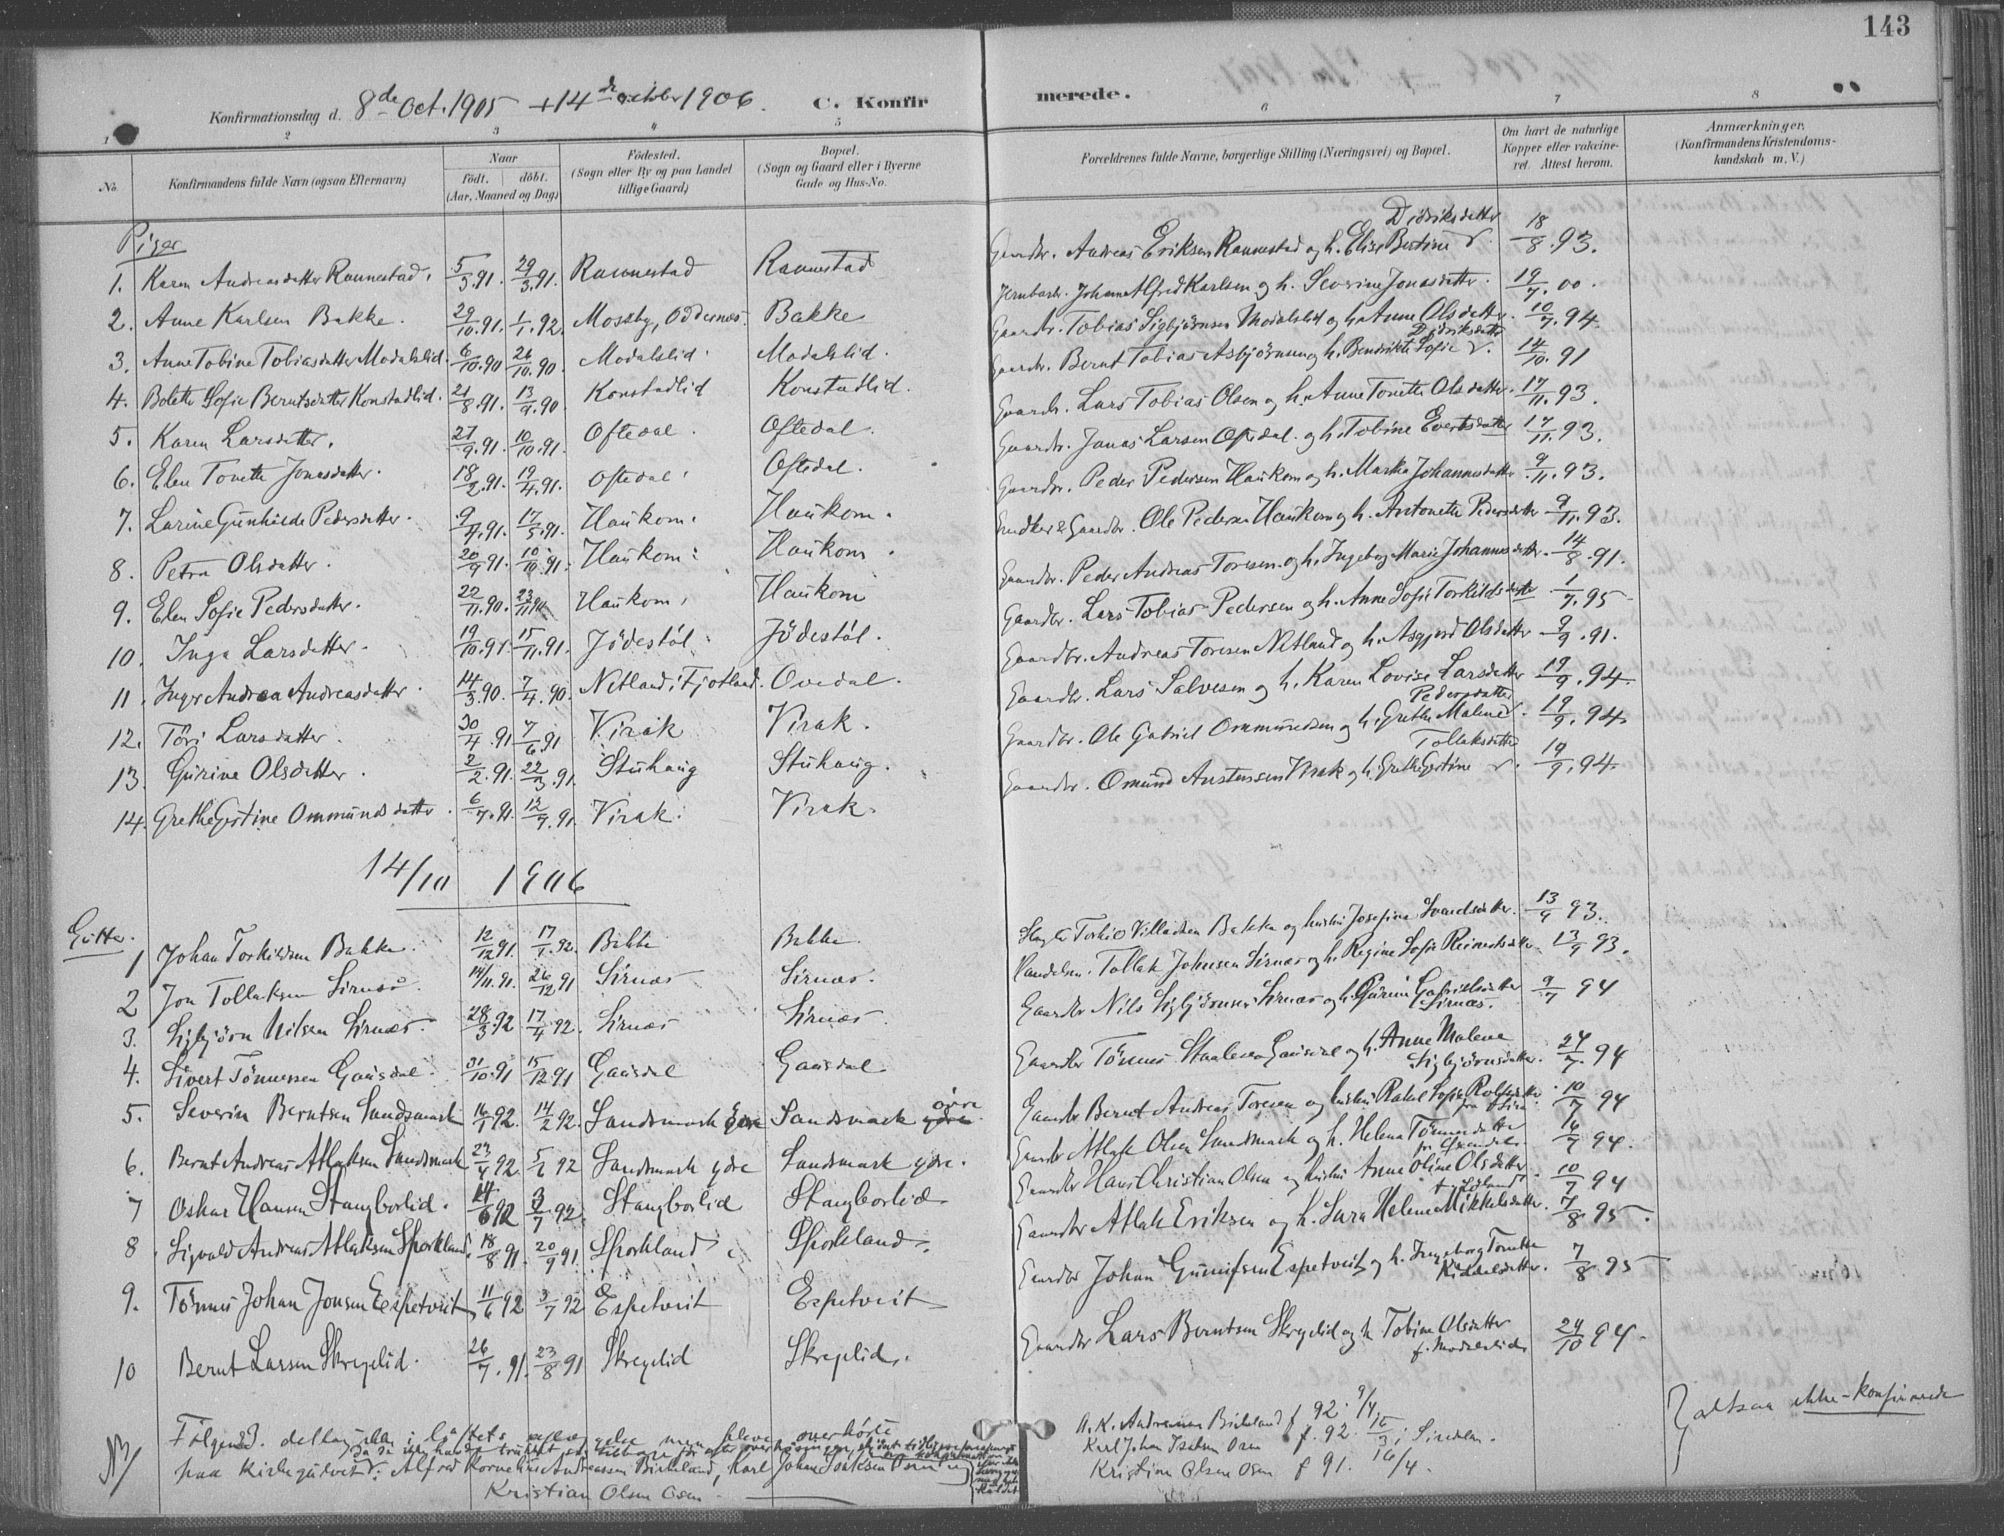 143
Konfirmationsdag d. 8de Oct. 1905 + 14de october 1906. C. Konfirmerede.
1 2 3 4 5 6 7 8
No. Konfirmandens fulde Navn (ogsaa Efternavn) Naar født. døbt. (Aar, Maaned og Dag) Fødested. (Sogn eller By og paa Landet tillige Gaard) Bopæl. (Sogn og Gaard eller i Byerne Gade og Hus-No. Forældrenes fulde Navne, borgerlige Stilling (Næringsvei) og Bopæl. Om havt de naturlige Kopper eller vaccineret. Attest herom. Anmærkninger. (Konfirmandens Kristendomskundskab m. V.)
Piger
1. Karen Andreasdatter Rannestad. 5/3.91. 29/3.91. Rannestad Rannestad Gaardbr. Andreas Eriksen Rannestad og h. Elise Bertine Didriksdatter 18/8.93.
2. Anne Karlsen Bakke. 29/10.91. 1/1.92. Mossby, Oddernes. Bakke Jernbarb. Johan Alfred Karlsen og h. Severine Jonasdatter. 19/7.00.
3. Anne Tobine Tobiasdatter Modalslid. 6/10.90 26/10.90. Modalslid. Modalslid. Gaardbr. Tobias Sigbjörnsen Modalslid og h. Anne Olsdatter. 10/7.94.
4. Bolette Sofie Berntsdatter Konstadlid. 21/8.91. 13/9.90. Konstadlid Konstadlid. Gaardbr. Bernt Tobias Asbjörnsen og h. Bendikte Sofie Didriksdatter. 14/10.91
5. Karen Larsdatter. 27/9.91. 10/10.91. Oftedal. Oftedal. Gaardbr. Lars Tobias Olsen og h. Anne Tonette Olsdatter. 17/11.93.
6. Elen Tonette Jonasdatter. 18/2.91. 19/4.91. Oftedal. Oftedal. Gaardbr. Jonas Larsen Oftedal. og h. Tobine Evertsdatter 17/11.93.
7. Larine Gunhilde Pedersdatter. 9/4.91. 17/5.91. Haukom. Haukom. Gaardbr. Peder Pedersen Haukom og h. Martha Johannesdatter 9/11.93.
8. Petra Olsdatter. 20/9.91. 10/10.91. Haukom. Haukom. Snedker & Gaardbr. Ole Pedersen Haukom og h. Antonette Pedersdatter 9/11.93.
9. Elen Sofie Pedersdatter. 22/11.90. 23/11.90. Haukom. Haukom Gaardbr. Peder Andreas Toresen og h. Ingeborg Marie Johannesdatter. 14/8.91.
10. Inga Larsdatter. 19/10.91. 15/11.91. Jödestöl. Jödestöl. Gaardbr. Lars Tobias Pedersen og h. Anne Sofie Torkildsdatter 1/7.95
11. Inger Andrea Andreasdatter. 14/3.90. 7/4.90. Netland i Fjotland. Ovedal. Gaardbr. Andreas Toresen Netland og h. Asgjerd Olsdatter 9/9.91.
12. Töri Larsdatter. 30/4.91 7/6.91 Virak Virak. Gaardbr. Lars Salvesen og h. Karen Lovise Larsdatter 19/9.94.
13. Gurine Olsdatter. 2/2.91. 22/3.91. Stuhaug Stuhaug. Gaardbr. Ole Gabriel Ommundsen og h. Grethe Malene Pedersdatter. 19/9.94.
14. Grethe Gertine Ommundsdatter. 6/7.91. 12/7.91. Virak. Virak. Gaardbr. Omund Austensen Virak og h. Grethe Gertine Tollaksdatter. 19/9.94.
14/10 1906
Gutter.
1 Johan Torkildsen Bakke. 12/12 91. 17/1.92. Bakke Bakke. Torkild Villadsen Bakke og hustru Josefine Svendsdatter. 13/9 93.
2 Jon Tollaksen Sirnæs. 14/11.91. 26/12 91 Sirnæs Sirnæs. Tollak Johnsen Sirnæs og h. Regine Sofie Reinertsdatter. 13/9 93.
3. Sigbjörn Nilsen Sirnæs. 28/3.92. 17/4.92. Sirnæs Sirnæs. Gaardbr Nils Sigbjörnsen Sirnæs og h. Gurine Gabrielsdatter Sirnæs. 9/7 94
4. Sivert Tönnessen Gausdal. 31/10.91 15/12 91 Gausdal Gausdal Gaardbr Tönnes Staalesen Gausdal og h. Anne Malene Sigbjörnsdatter. 24/7.94
5. Severin Berntsen Sandsmark 16/1 92. 14/2 92. Sandsmark övre Sandsmark ydre övre Gaardbr Bernt Andreas Toresen og hustru Rakel Sofie Rolfsdatter fra Sira 10/7 94
6. Bernt Andreas Atlaksen Sandsmark 23/4 92 5/6 92 Sandsmark ydre Sandsmark ydre. Gaardbr Atlak Olsen Sandsmark og h. Helena Tönnesdatter 16/7 94.
7 Oskar Hansen Stangborlid. 14/6 92 3/7 92. Stangborlid Stangborlid Gaardbr Hans Christian Olsen og hustru Anne Oline Olsdatter 10/7 94
8. Sigvald Andreas Atlaksen Sporkland. 18/8 91. 20/9 91. Sporkland Sporkland. Gaardbr Atlak Eriksen og h. Sara Helene Mikkelsdatter. 7/8.95.
9. Tönnes Johan Jonsen Espetveit 11/6 92 3/7 92 Espetveit Espetveit Gaardbr Johan Gunufsen Espetveit og h. Ingeborg Tonette Kiddelsdatter. 7/8.95
10 Bernt Larsen Skregelid. 26/7.91. 23/8 91 Skregelid Skregelid. Gaardbr Lars Berntsen Skregelid og h Tobine Olsdatter f. Modalslid 24/10 94.
NB/ Følgende deltog ikke i Løftets aflæggelse men bleve overhörte
paa Kirkegulvet: Alfred Kornelius Andreassen Birkeland, Karl Johan Isaksen Osen og
Kristian Olsen Osen.
A. K. Andreassen Birkeland f 92. 9/4
Karl Johan Isaksen Osen f. 92. 15/3 i Siredalen.
Kristian Olsen Osen f 91. 16/4.
} altsaa ikke-konfirmerede